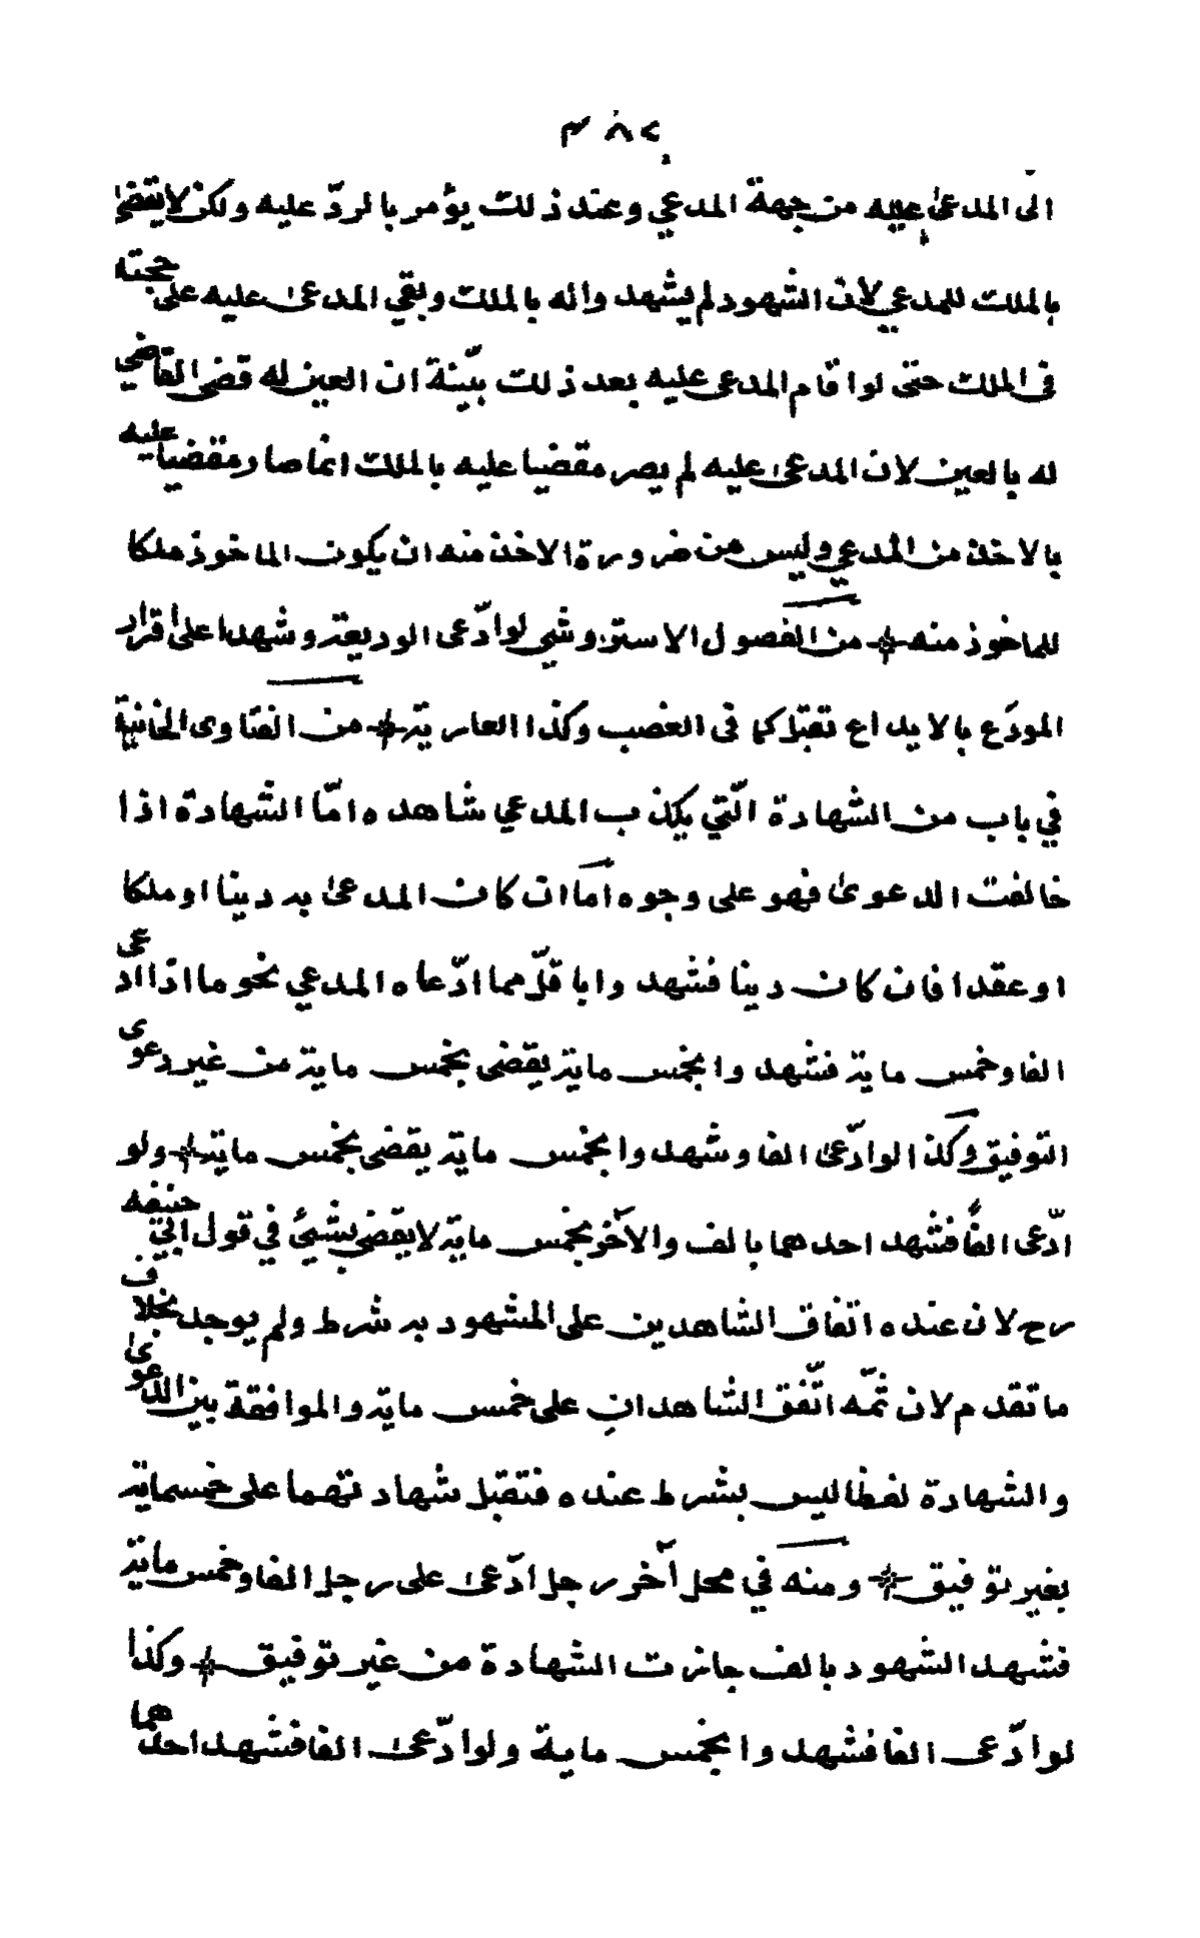 ٣٨٢
الى المدعى عليه من جهة المدعي وعند ذلك يؤمر بالردّ عليه ولكن لا يقضى
بالملك للمدعي لان الشهود لم يشهد واله بالملك وبقي المدعى عليه على حجته
فى الملك حتى لواقام المدعى عليه بعد ذلك بيّنة ان العين له قضى القاضي
له بالعين لان المدعى عليه لم يصر مقضيا عليه بالملك انما صار مقضيا عليه
بالاخذ من المدعي وليس من ضرورة الاخذ منه ان يكون الماخوذ ملكا
للماخوذ منه * من الفصول الاستروشني لوادّعى الوديعة وشهدا على اقرار
المودَع بالايداع تقبل كما فى الغصب وكذا العارية * من الفتاوى الخانية
في باب من الشهادة الّتي يكذب المدعي شاهده امّا الشهادة اذا
خالفت الدعوى فهو على وجوه امّا ان كان المدعى به دينا او ملكا
اوعقدا فان كان دينا فشهد وا باقلّ مما ادّعاه المدعي نحو ما اذا ادعى
الفا وخمس ماية فشهد وا بخمس ماية يقضى بخمس ماية من غير دعوى
التوفيق وكذا لوادّعى الفا وشهد وا بخمس ماية يقضى بخمس ماية * ولو
ادّعى الفًا فشهد احدهما بالف والآخر بخمس ماية لا يقضي بشيئ في قول ابي حنيفه
رح لان عنده اتفاق الشاهدين على المشهود به شرط ولم يوجد بخلاف
ما تقدم لان ثمّه اتّفق الشاهدان على خمس ماية والموافقة بين الدعوى
والشهادة لفظا ليس بشرط عنده فتقبل شهادتهما على خمسماية
بغير توفيق * ومنه في محل آخر رجل ادّعى على رجل الفا وخمس ماية
فشهد الشهود بالف جازت الشهادة من غير توفيق * وكذا
لوادّعى الفا فشهد وا بخمس ماية ولوادّعى الفا فشهد احدهما